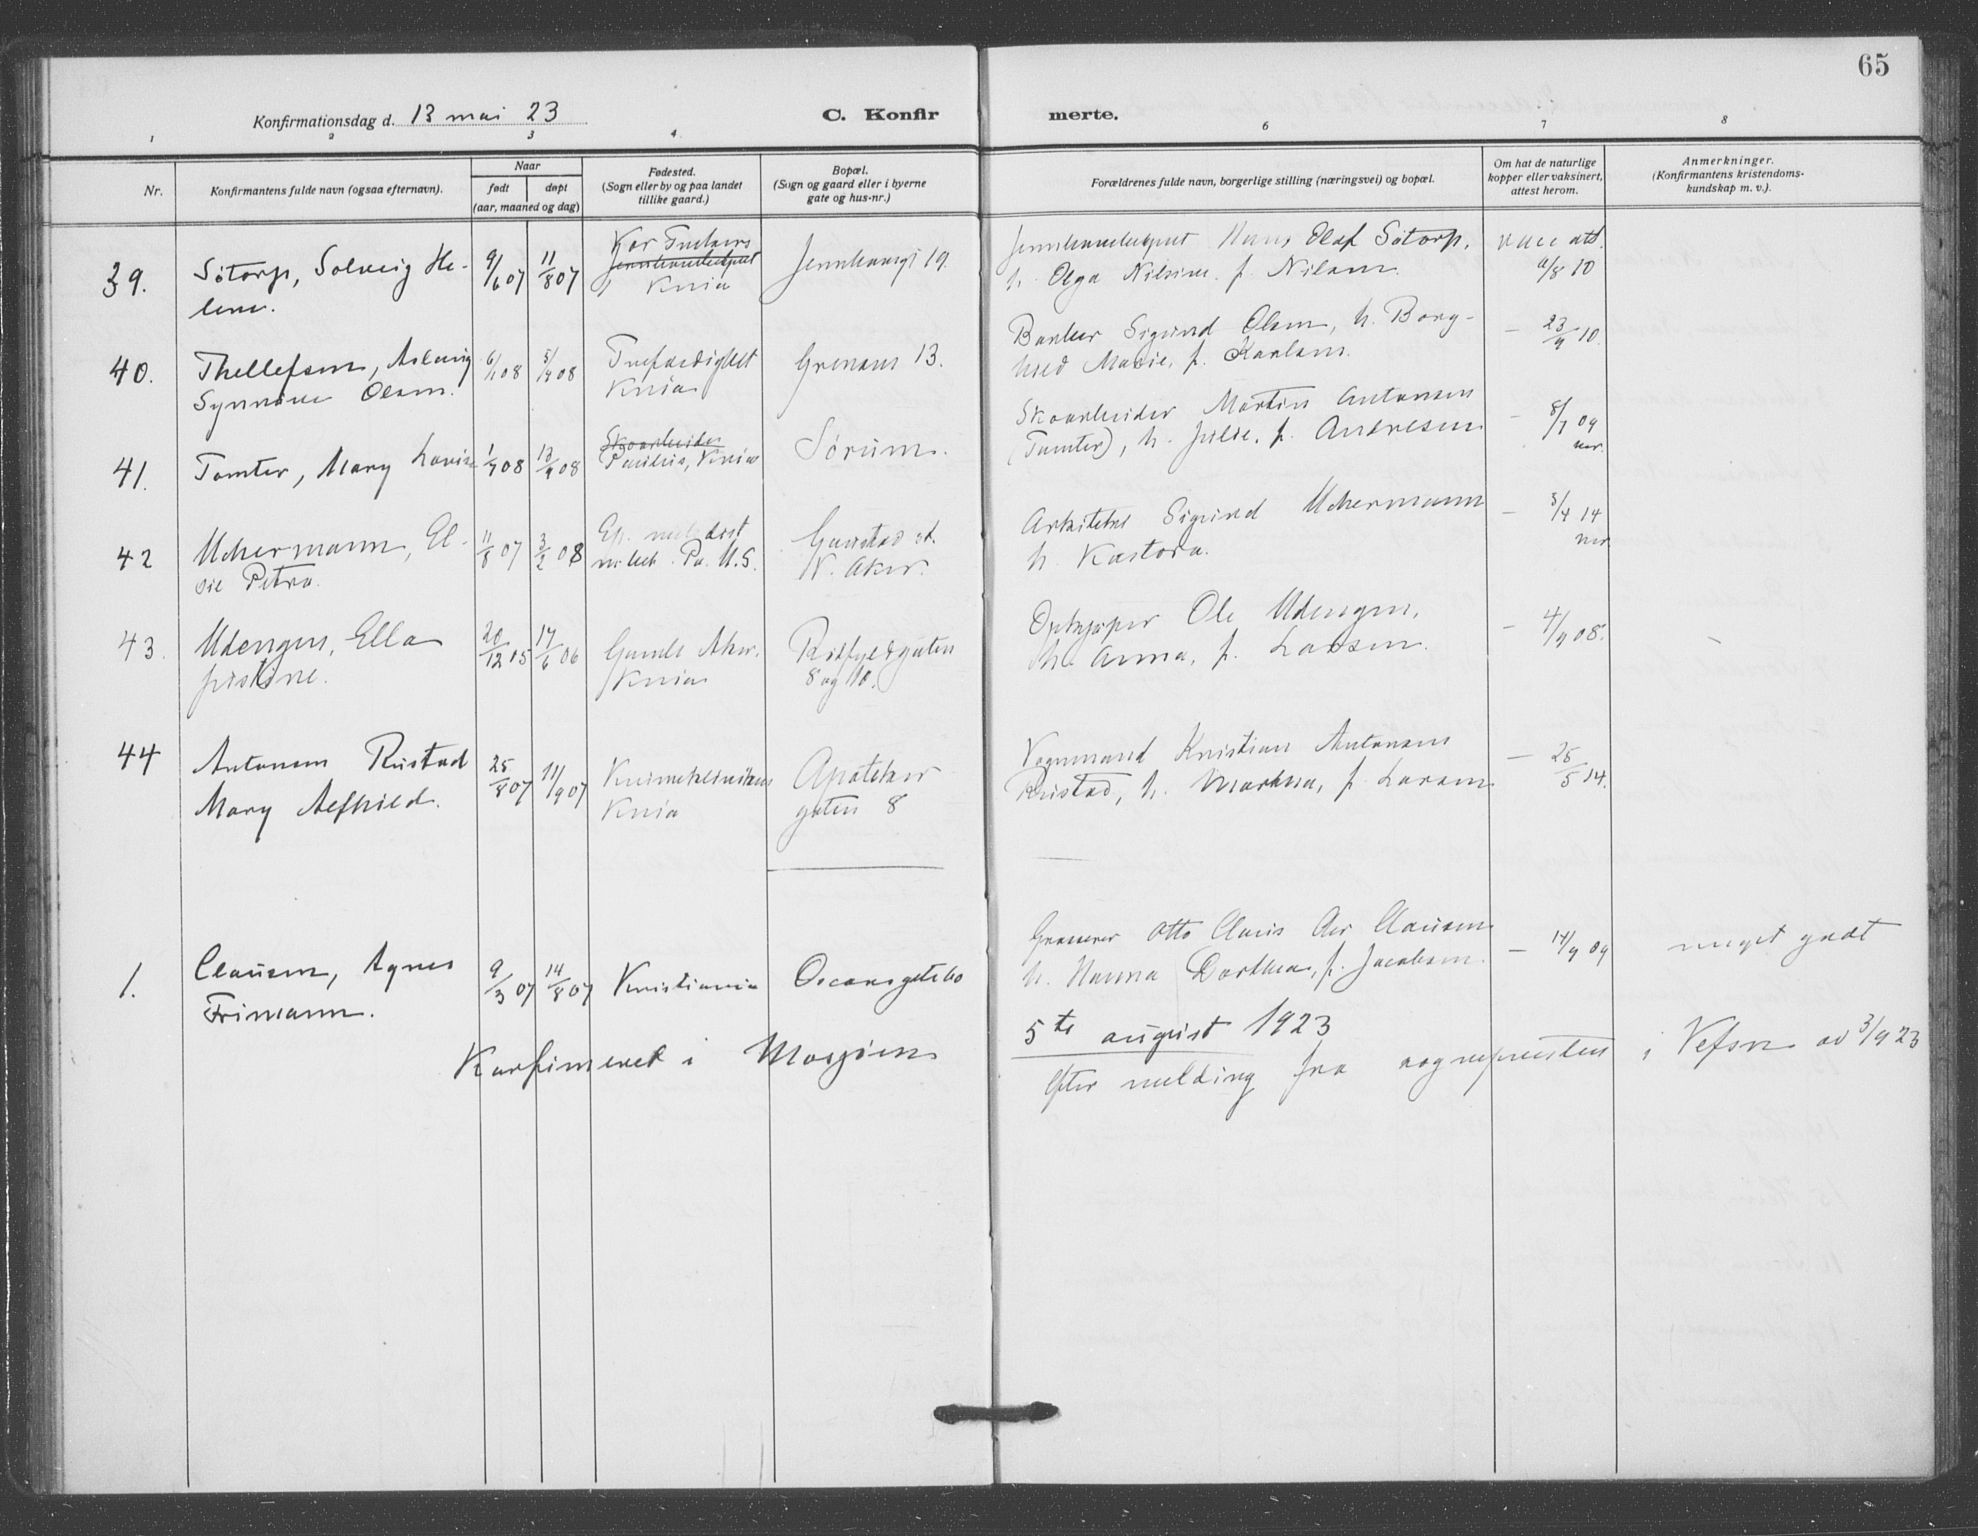 65
Konfirmationsdag d. 13 mai 23
C. Konfirmerte.
1 2 3 4 6 7 8
Nr.
Konfirmantens fulde navn (ogsaa efternavn).
Naar
født døpt
(aar, maaned og dag)
Fødested.
(Sogn eller by og paa landet
tillike gaard.)
Bopæl.
(Sogn og gaard eller i byerne
gate og hus-nr.)
Forældrenes fulde navn, borgerlige stilling (næringsvei) og bopæl.
Om hat de naturlige
kopper eller vaksinert,
attest herom.
Anmerkninger.
(Konfirmantens kristendoms-
kundskap m. v.).
39. Søtorp, Solveig He-
lene.
9/6 07 11/8 07
Kria
19.
Olaf Søtorp,
h. Olga Nilsine f. Nilsen.
vacc att.
/8 10
40. Thellefsen, Aslaug
Synnøve Olsen.
6/1 08 5/4 08
Trefoldighet
Kria
Grønsns 13.
Banker Sigurd Olsen, h. Borg-
hild Marie, f. Karlsen.
— 23/9 10.
41. Tomter, Mary Lovise
1/7 08 13/9 08
Skoarbeider
Paulus, Kria
Sørum.
Skoarbeider Martin Antonsen
(Tomter), h. Julie, f. Andresen
— 8/7 09
42 Uchermann, El-
sie Petra.
11/8 07 3/2 08
Gaustad st.
V. Aker.
Arkitekt Sigurd Uchermann
h. Kastora.
— 3/4 14
43. Udengen, Ella
Kristine.
20/12 05 17/6 06
Gamle Aker.
Kria
8 og 10.
Opkjøper Ole Udengen,
h. Anna, f. Larsen.
— 4/9 08.
44 Antonsen Rustad
Mary Alfhild.
25/8 07 11/9 07
Kvinneklinikken
Kria
Apoteker
gaten 8
Vognmand Kristian Antonsen
Rustad, h. Martha, f. Larsen
— 25/5 14.
1. Clausen, Agnes
Frimann.
9/3 07 14/8 07
Kristiania
Oscarsgate 60
Grosserer Otto Claus Aer Clausen
h. Hanna Dorthea, f. Jacobsen.
— 14/9 09
meget godt
Konfirmeret i Mosjøen 5te august 1923
Efter melding fra sognepresten i Vefsn av 3/9 23